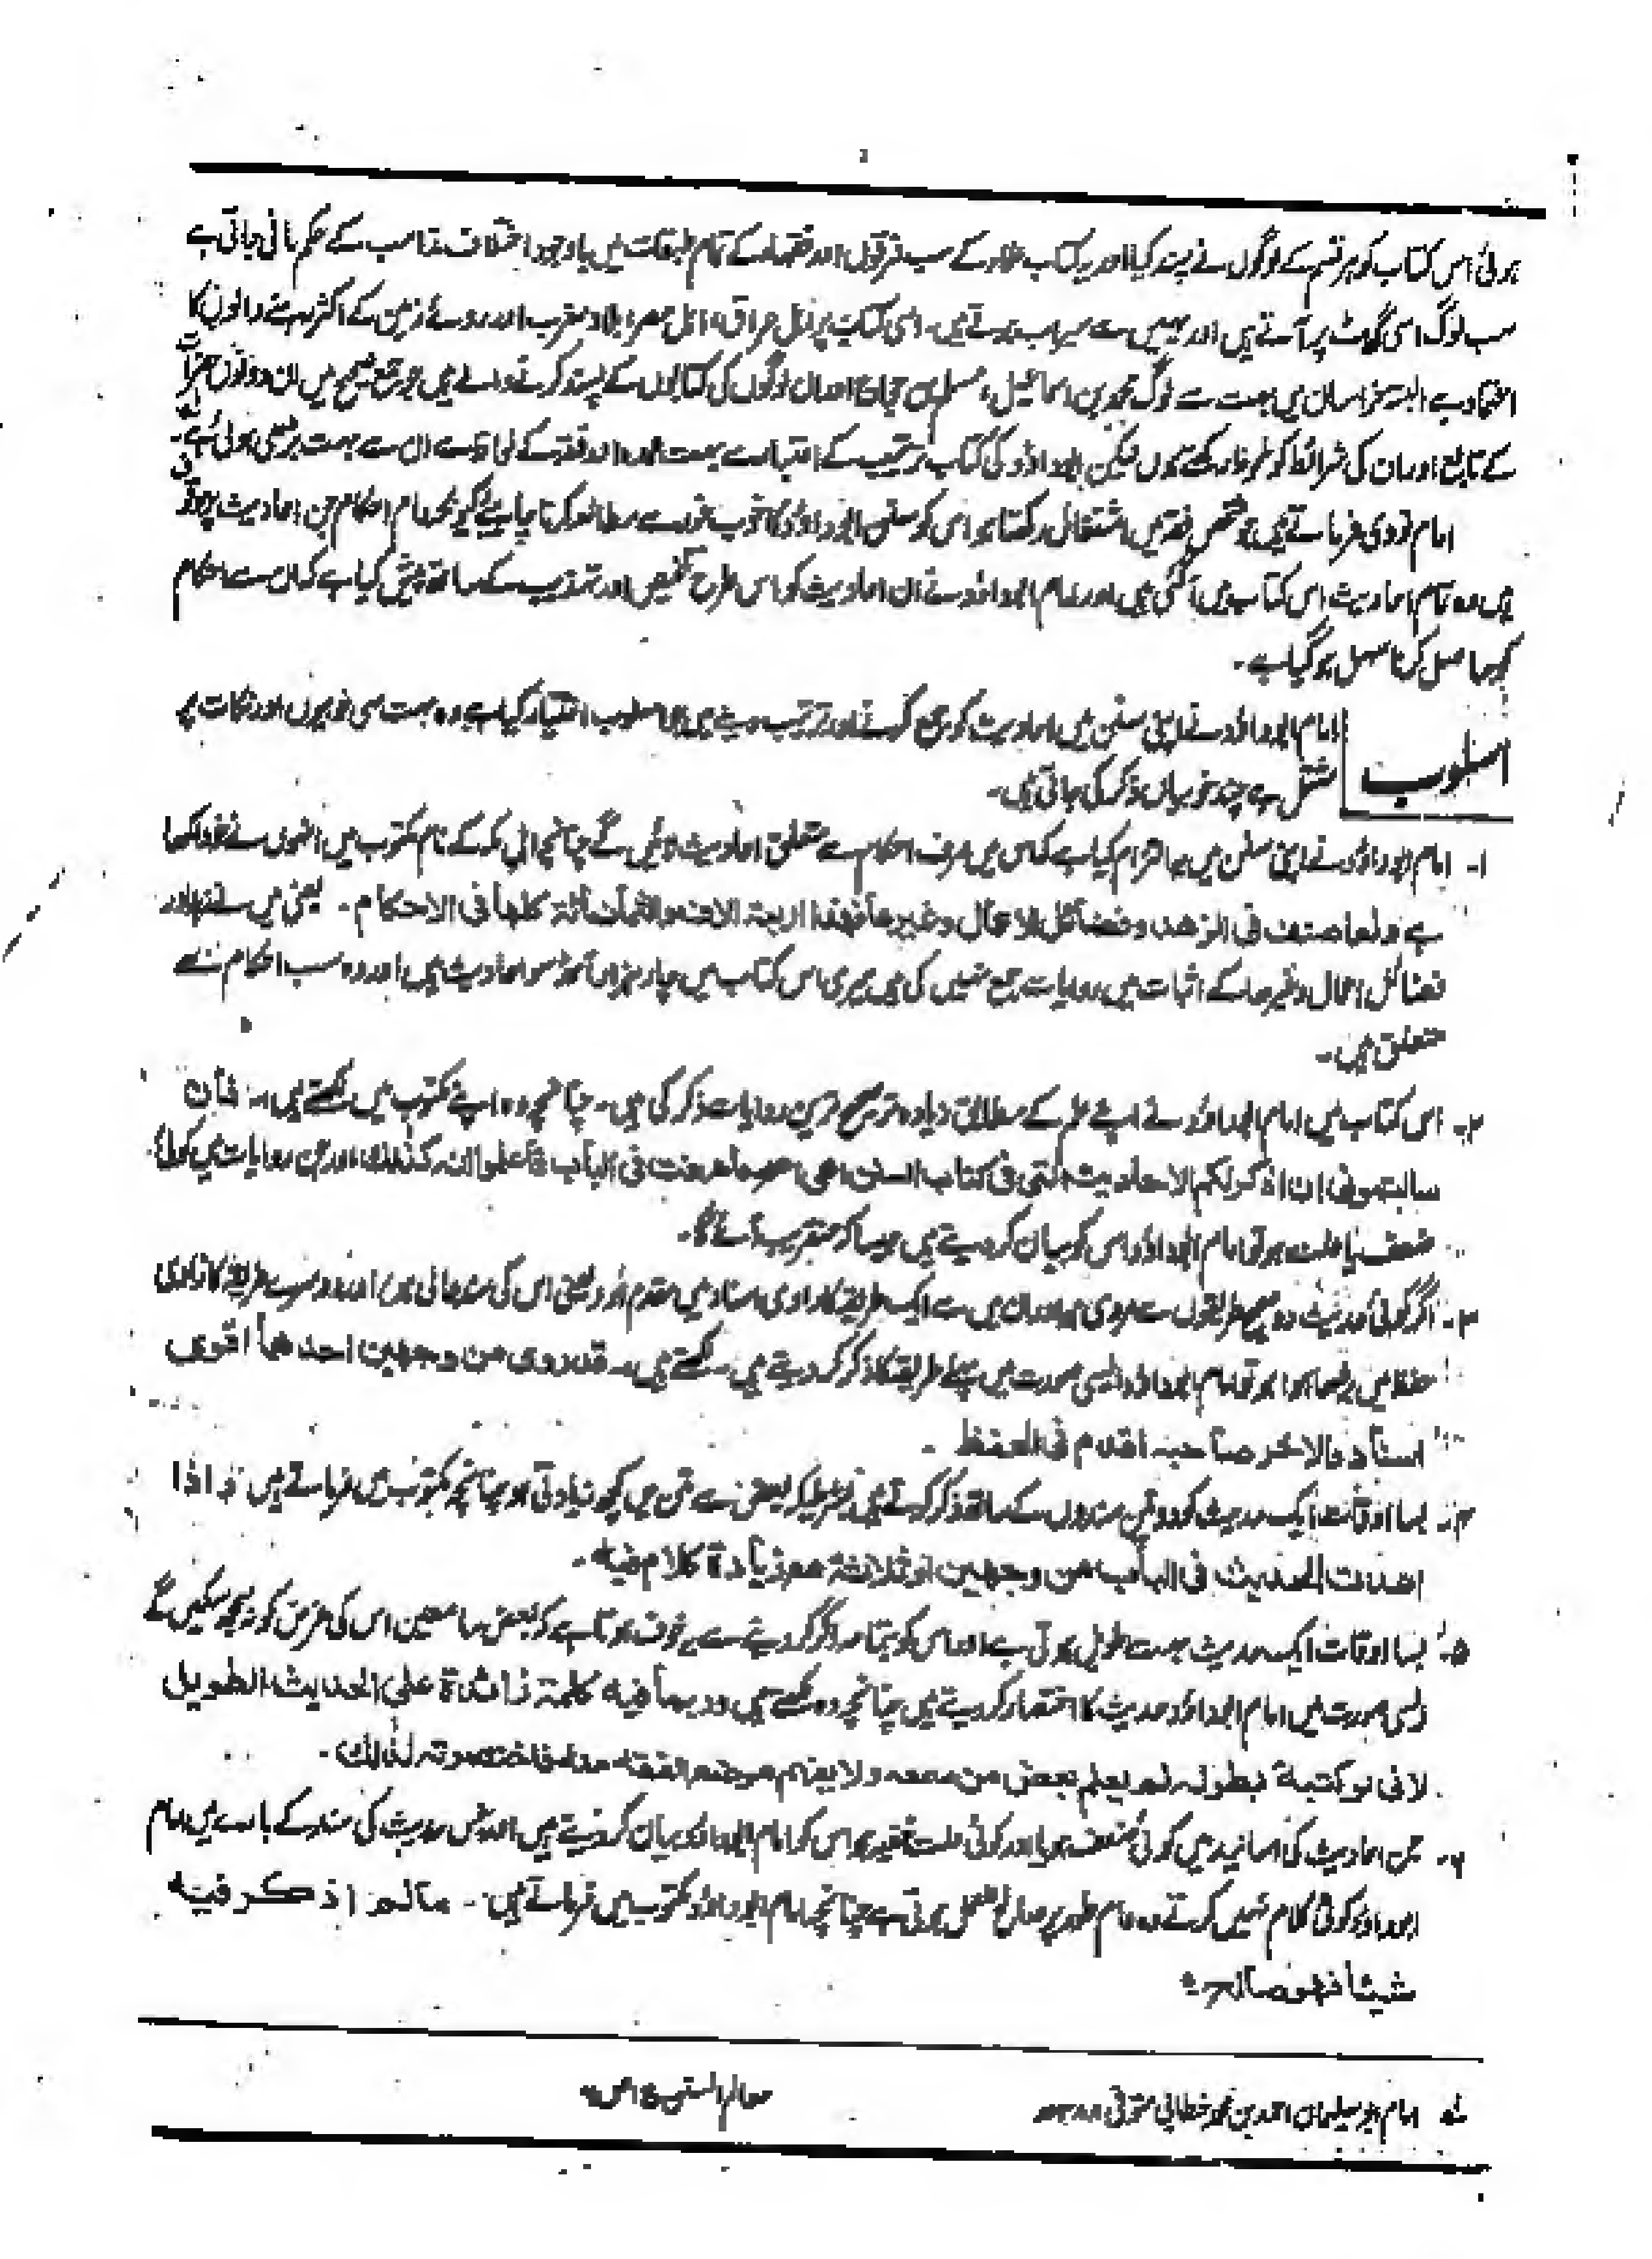 ہوئی اس کتاب کو ہر قسم کے لوگوں نے پسند کیا اور یہ کتاب علماء کے سب فرقوں اور فقہاء کے تمام طبقات میں باوجود اختلاف مذاہب کے حکم مانی جاتی ہے
سب لوگ اسی گھاٹ پر آتے ہیں اور یہیں سے سیراب ہوتے ہیں۔ اسی کتاب پر اہل عراق، اہل مصر، بلاد مغرب اور روئے زمین کے اکثر رہنے والوں کا
اعتماد ہے البتہ خراسان میں بہت سے لوگ محمد بن اسماعیل، مسلم بن حجاج اور ان لوگوں کی کتابوں کے پسند کرنے والے ہیں جو جمع صحیح میں ان دونوں حضرات
کے تابع اور ان کی شرائط کو ملحوظ رکھتے ہوں لیکن ابوداؤد کی کتاب ترتیب کے اعتبار سے بہت عمدہ اور فقہ کے لحاظ سے ان سے بہت بڑھی ہوئی ہے۔
امام نووی فرماتے ہیں جو شخص فقہ میں اشتغال رکھتا ہو اس کو سنن ابوداؤد کا خوب غور سے مطالعہ کرنا چاہیے کیونکہ عام احکام جن احادیث پر موقوف
ہیں وہ تمام احادیث اس کتاب میں آگئی ہیں اور امام ابوداؤد نے ان احادیث کو اس طرح تلخیص اور تہذیب کے ساتھ پیش کیا ہے کہ ان سے احکام
کو حاصل کرنا سہل ہوگیا ہے۔
اسلوب
امام ابوداؤد نے اپنی سنن میں احادیث کو جمع کرنے اور ترتیب دینے میں جو اسلوب اختیار کیا ہے وہ بہت سی خوبیوں اور نکات پر
مشتمل ہے چند خوبیاں ذکر کی جاتی ہیں۔
۱۔ امام ابوداؤد نے اپنی سنن میں یہ التزام کیا ہے کہ اس میں صرف احکام سے متعلق احادیث لائیں گے چنانچہ اہل مکہ کے نام مکتوب میں انھوں نے خود لکھا
ہے ولم اصنف فی الزھد وفضائل الاعمال وغیرھا فھذا اربعۃ الاف والثمان مائۃ کلھا فی الاحکام۔ یعنی میں نے زہد اور
فضائل اعمال وغیرھا کے اثبات میں روایات جمع نہیں کی ہیں میری اس کتاب میں چار ہزار آٹھ سو احادیث ہیں اور وہ سب احکام سے
متعلق ہیں۔
۲۔ اس کتاب میں امام ابوداؤد نے اپنے علم کے مطابق زیادہ تر صحیح ترین روایات ذکر کی ہیں۔ چنانچہ وہ اپنے مکتوب میں لکھتے ہیں۔ فان
سالتمونی ان اذکر لکم الاحادیث التی فی کتاب السنن اھی اصح ما عرفت فی الباب فاعلموا انہ کذلک اور جن روایات میں کوئی
ضعف یا علت ہو تو امام ابوداؤد اس کو بیان کر دیتے ہیں جیسا کہ عنقریب آئے گا۔
۳۔ اگر کوئی حدیث دو صحیح طریقوں سے مروی ہو اور ان میں سے ایک طریقہ کا راوی اسناد میں مقدم ہو (یعنی اس کی سند عالی ہو) اور دوسرے طریقہ کا راوی
حفظ میں بڑھا ہوا ہو تو امام ابوداؤد ایسی صورت میں پہلے طریقہ کا ذکر کر دیتے ہیں لکھتے ہیں۔ قد روی من وجھین احدھا اقوی
اسنادا والاخر صاحبہ اقدم فی الحفظ۔
۴۔ بسا اوقات ایک حدیث کو دو تین سندوں کے ساتھ ذکر کرتے ہیں بشرطیکہ بعض سے متن میں کچھ زیادتی ہو چنانچہ مکتوب میں فرماتے ہیں واذا
اعدت الحدیث فی الباب من وجھین او ثلاثۃ مع زیادۃ کلام فیہ۔
۵۔ بسا اوقات ایک حدیث بہت طویل ہوتی ہے اور اس کو بتمامہ ذکر کر دینے سے یہ خوف ہوتا ہے کہ بعض سامعین اس کی غرض کو نہ سمجھ سکیں گے
ایسی صورت میں امام ابوداؤد حدیث کا اختصار کر دیتے ہیں چنانچہ وہ لکھتے ہیں وربما فیہ کلمۃ زائدۃ علی الحدیث الطویل
لانی لو کتبتہ بطولہ لم یعلم بعض من سمعہ ولا یفھم موضع الفقہ منہ فاختصرتہ لذلک۔
۶۔ جن احادیث کی اسانید میں کوئی ضعف ہو یا اور کوئی علت خفیہ ہو اس کو امام ابوداؤد بیان کر دیتے ہیں اور جس حدیث کی سند کے بارے میں امام
ابوداؤد کوئی کلام نہیں کرتے وہ عام طور پر صالح للعمل ہوتی ہے چنانچہ امام ابوداؤد مکتوب میں فرماتے ہیں۔ مالم اذکر فیہ
شیئا فھو صالح۔
امام ابوسلیمان احمد بن محمد خطابی متوفی ۳۸۸ھ معالم السنن ج۱ ص